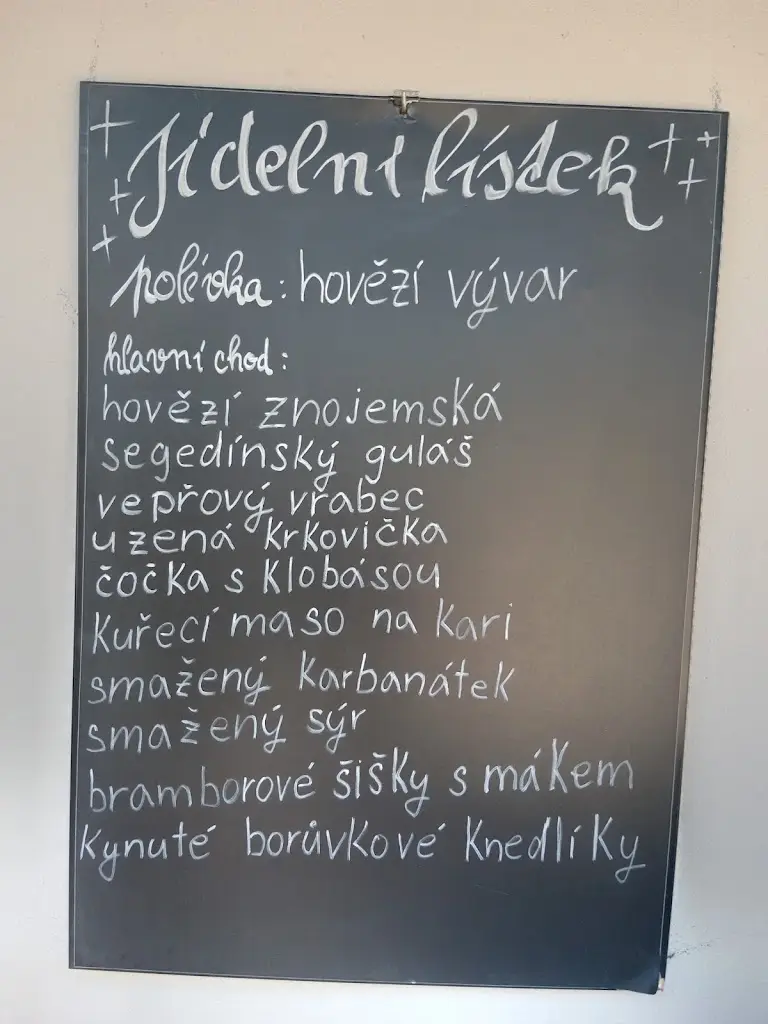 Jídelní lístek
polévka: hovězí vývar
hlavní chod:
hovězí znojemská
segedínský guláš
vepřový vrabec
uzená krkovička
čočka s klobásou
kuřecí maso na kari
smažený karbanátek
smažený sýr
bramborové šišky s mákem
kynuté borůvkové knedlíky